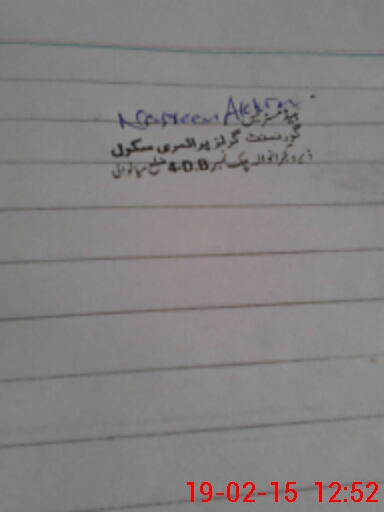 Nasreen Akhtar
ہیڈمسٹریس
گورنمنٹ گرلز پرائمری سکول
چک نمبر 4-D.B ضلع میانوالی
19-02-15 12:52